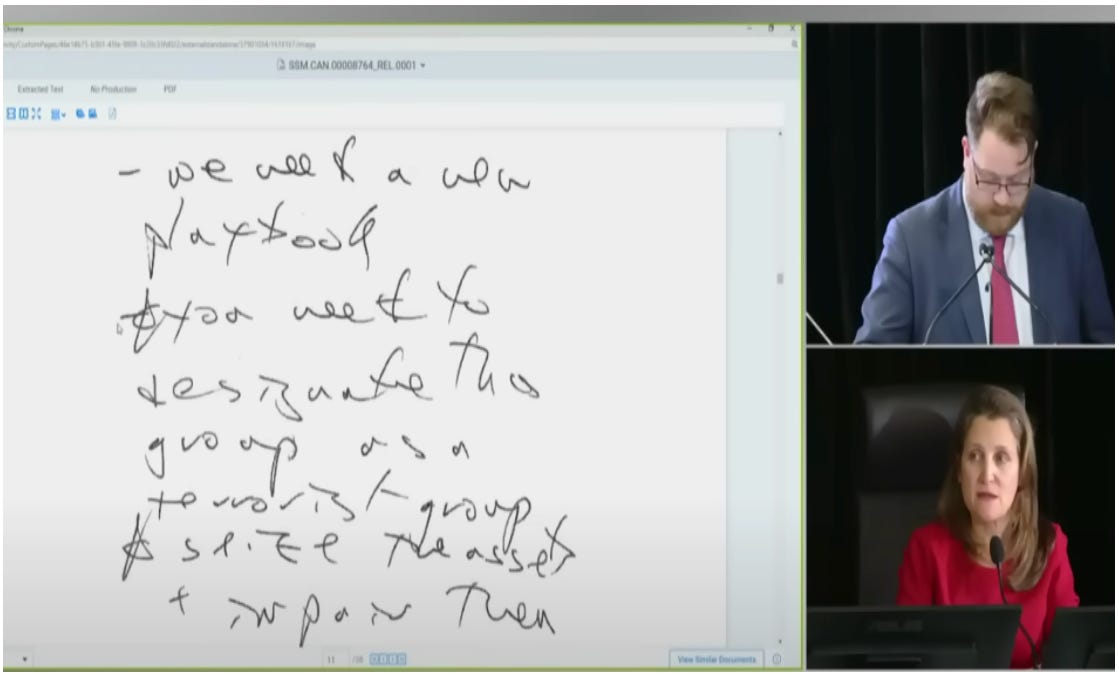 Chrome
SSM.CAN.00008764_REL.0001
Extracted Text No Production PDF
- we need a new
Playbook
you need to
designate this
group as a
terrorist group
seize the assets
+ impair them
11 /
View Similar Documents
ASUS